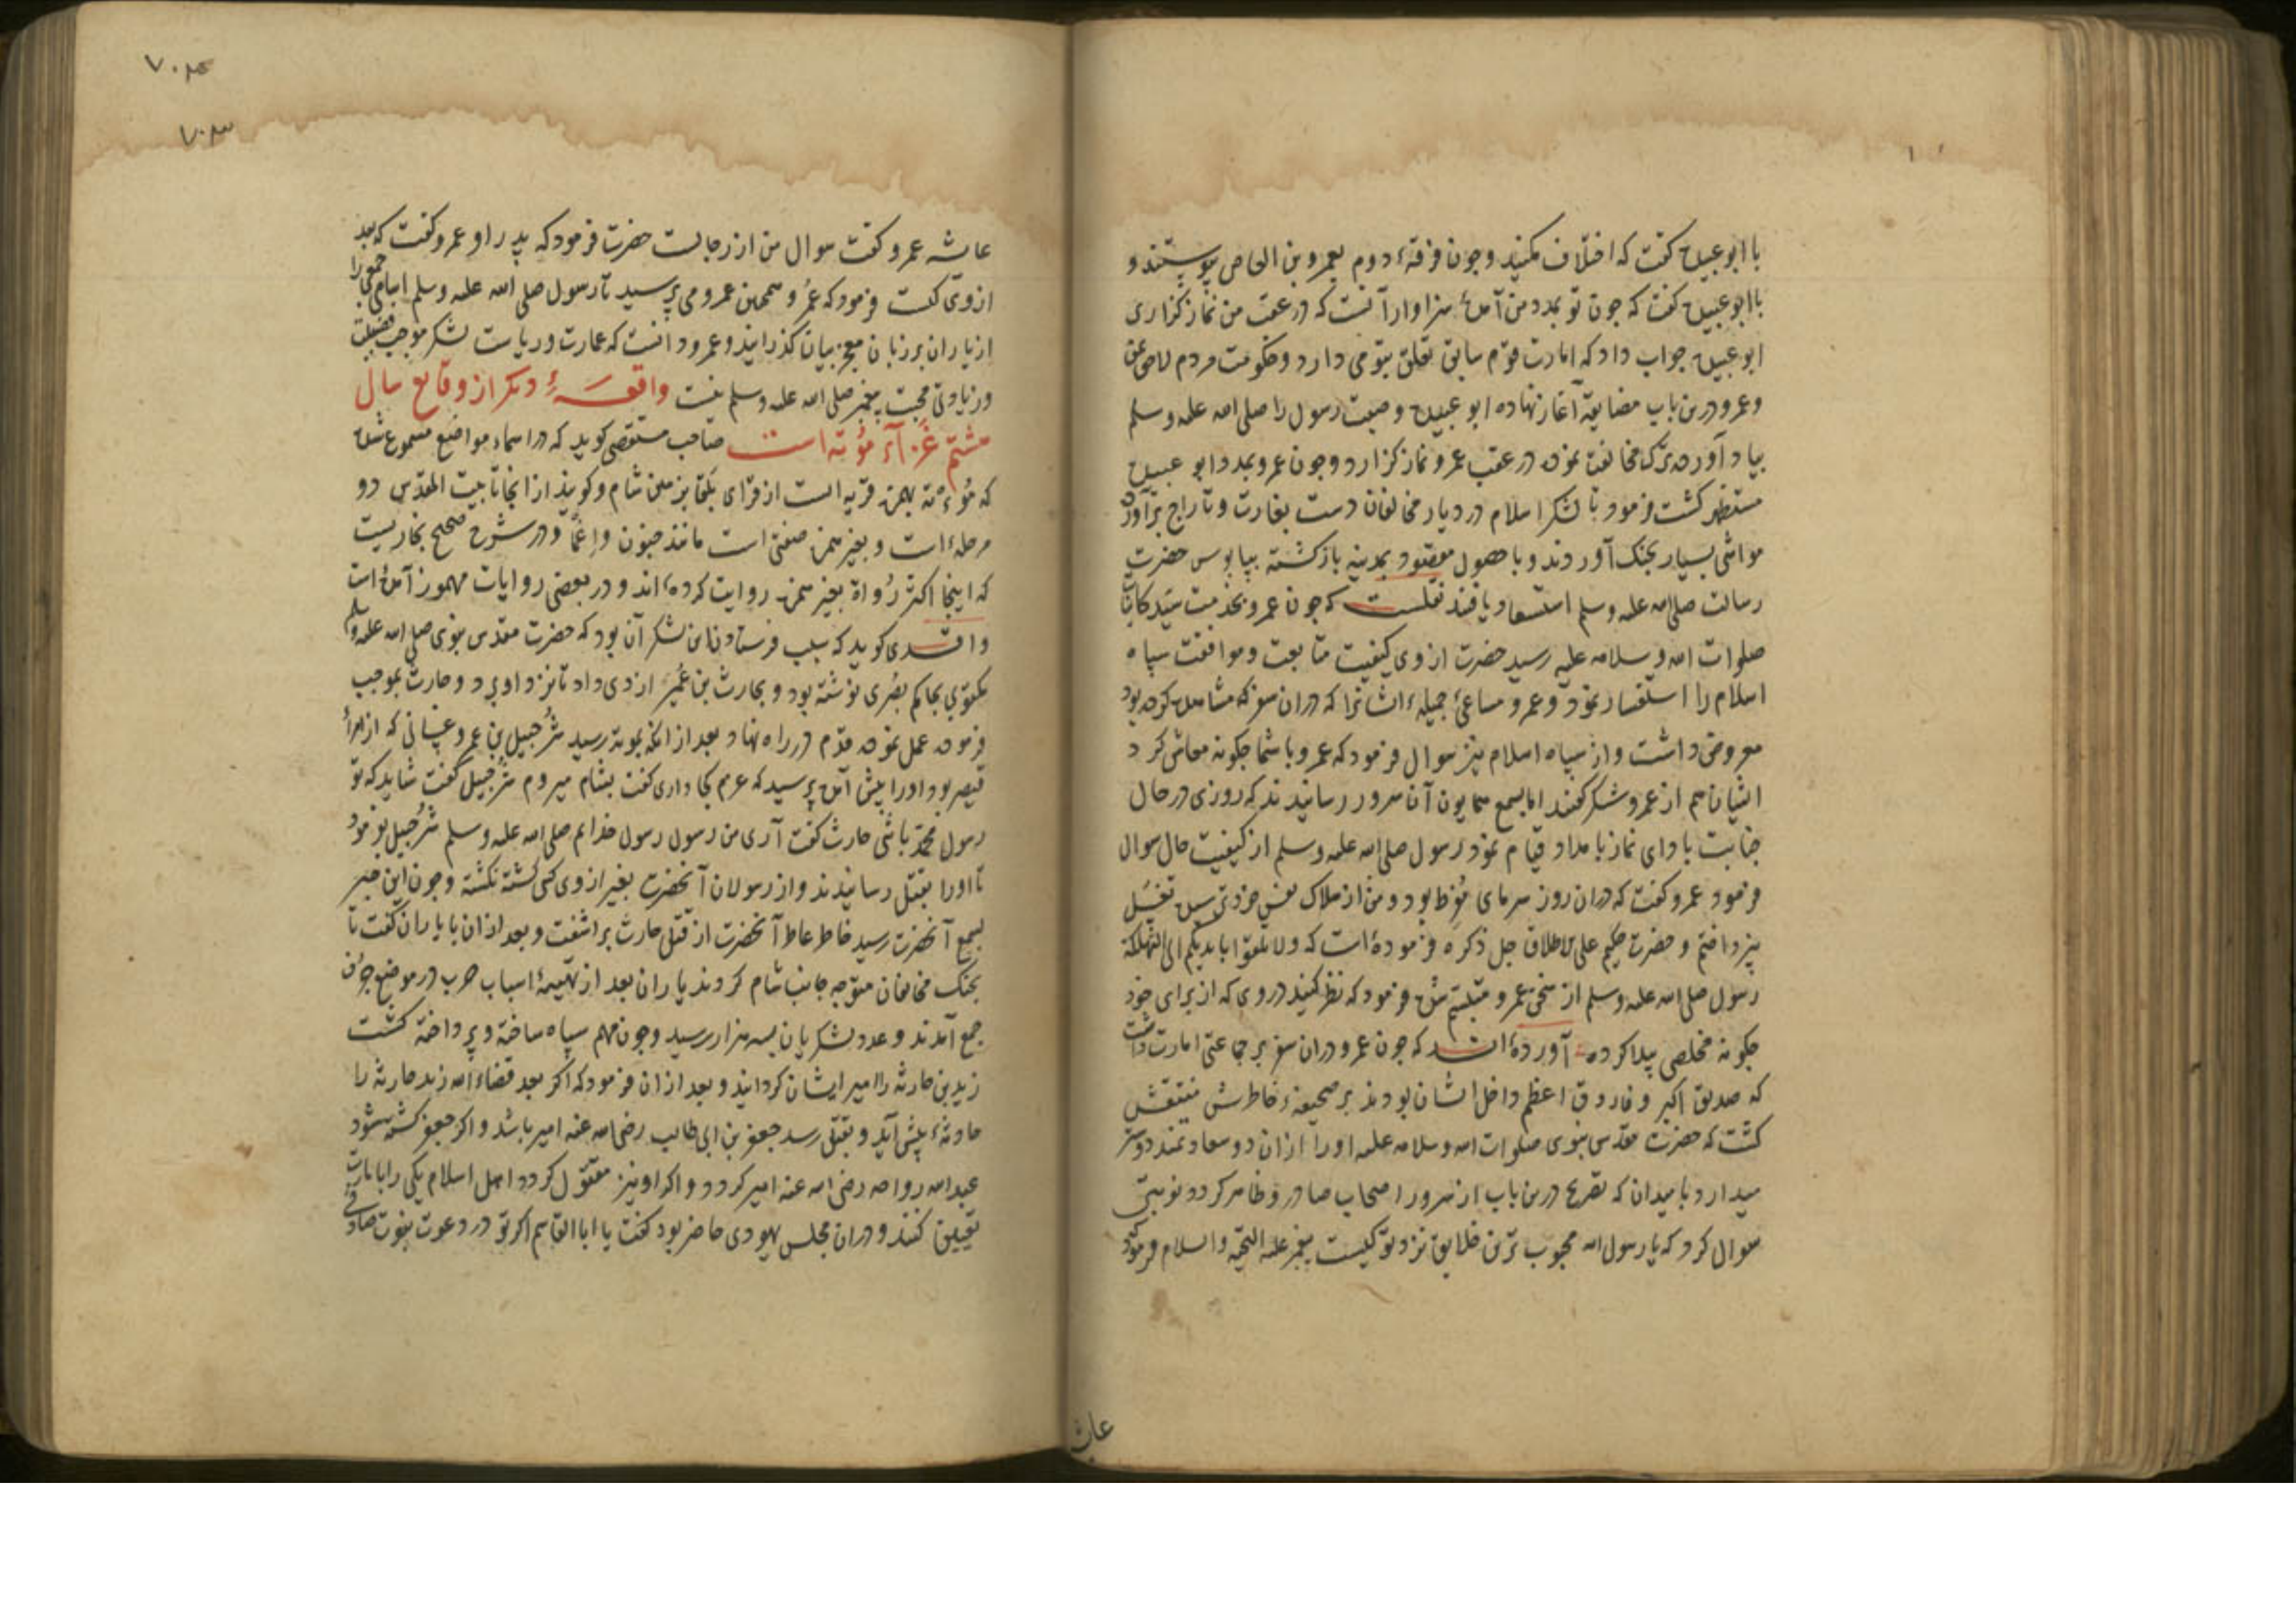 با ابو عبیده کفت که اختلاف مکنید و چون فرقهٔ دوم بعمرو بن العاص پیوستند و
با ابو عبیده کفت که چون تو بمدد من آمدهٔ سزاوار آنست که در عقب من نماز کزاری
ابو عبیده جواب داد که امارت قوم سابق تعلق بتو می دارد و حکومت مردم لاحق بمن
و عمرو درین باب مضایقه آغاز نهاده ابو عبیده وصیت رسول را صلی الله علیه وسلم
بیاد آورده ترک مخالفت نموده در عقب عمرو نماز کزارد و چون عمرو بمدد ابو عبیده
مستظهر کشت فرمود تا لشکر اسلام در دیار مخالفان دست بغارت و تاراج برآورده
مواشی بسیار بچنک آوردند و با حصول مقصود بمدینه بازکشته بپابوس حضرت
رسالت صلی الله علیه وسلم استسعاد یافتند نقلست که چون عمرو بخدمت سید کاینات
صلوات الله وسلامه علیه رسید حضرت از وی کیفیت متابعت و موافقت سپاه
اسلام را استفسار نمود و عمرو مساعیٔ جمیلهٔ ایشانرا که دران سفر مشاهده کرده بود
معروض داشت و از سپاه اسلام نیز سوال فرمود که عمرو با شما چکونه معاش کرد
ایشان هم از عمرو شکر کفتند اما بسمع همایون آن سرور رسانیدند که روزی در حال
جنابت باداء نماز بامداد قیام نمود رسول صلی الله علیه وسلم از کیفیت حال سوال
فرمود عمرو کفت که دران روز سرمای مفرط بود و من از هلاک نفس خود ترسیده بغسل
نپرداختم و حضرت حکیم علی الاطلاق جل ذکره فرموده است که ولا تلقوا بایدیکم الی التهلکة
رسول صلی الله علیه وسلم از سخن عمرو متبسم شده فرمود که نظر کنید در وی که از برای خود
چکونه مخلصی پیدا کرده آورده اند که چون عمرو دران سفر بر جماعتی امارت داشت
که صدیق اکبر و فاروق اعظم داخل ایشان بودند بر صحیفهٔ خاطرش منتقش
کشت که حضرت مقدس نبوی صلوات الله وسلامه علیه اورا ازان دو سعادتمند دوستر
میدارد بامید آن که تصریح درین باب ازان سرور اصحاب صادر و ظاهر کردد نوبتی
سوال کرد که یا رسول الله محبوب ترین خلایق نزد تو کیست پیغمبر علیه التحیة والسلام فرمود که
عایشه
عایشه عمرو کفت سوال من از رجالست حضرت فرمود که پدر او عمرو کفت که بعد
از وی کیست فرمود که عمر و همچنین عمرو می پرسید تا رسول صلی الله علیه وسلم اسامی جمعی را
از یاران بر زبان معجز بیان کذرانید و عمرو دانست که امارت و ریاست لشکر موجب فضیلت
و زیادتی محبت پیغمبر صلی الله علیه وسلم نیست واقعهٔ دیکر از وقایع سال
هشتم غزاء مؤته است صاحب مستقصی کوید که در اسماء مواضع مسموع شده
که مؤته بهمزه قریه است از قرای بلقا بزمین شام و کویند از انجا تا بیت المقدس دو
مرحله است و بغیر همزه صنفی است مانند جنون و اغما و در شرح صحیح بخاریست
که اینجا اکثر رواة بغیر همزه روایت کرده اند و در بعضی روایات مهموز آمده است
واقدی کوید که سبب فرستادن این لشکر آن بود که حضرت مقدس نبوی صلی الله علیه وسلم
مکتوبی بحاکم بصری نوشته بود و بحارث بن عمیر ازدی داد تا نزد او برد و حارث بموجب
فرموده عمل نموده قدم در راه نهاد بعد از انکه بموته رسید شرحبیل بن عمرو غسانی که از امراء
قیصر بود اورا پیش آمده پرسید که عزم کجا داری کفت بشام میروم شرحبیل کفت شاید که تو
رسول محمد باشی حارث کفت آری من رسول رسول خدایم صلی الله علیه وسلم شرحبیل بفرمود
تا اورا بقتل رسانیدند و از رسولان آنحضرت بغیر از وی کسی کشته نکشته و چون این خبر
بسمع آنحضرت رسید خاطر عاطر آنحضرت از قتل حارث براشفت و بعد ازان با یاران کفت تا
بجنک مخالفان متوجه جانب شام کردند یاران بعد از تهیهٔ اسباب حرب در موضع جرف
جمع آمدند و عدد لشکریان بسه هزار رسید و چون مهم سپاه ساخته و پرداخته کشت
زید بن حارثه را امیر ایشان کردانید و بعد ازان فرمود که اکر بعد قضاء الله زید حارثه را
حادثهٔ پیش آید و بقتل رسد جعفر بن ابی طالب رضی الله عنه امیر باشد و اکر جعفر کشته شود
عبدالله رواحه رضی الله عنه امیر کردد و اکر او نیز مقتول کردد اهل اسلام یکی را بامارت
تعیین کنند و دران مجلس یهودی حاضر بود کفت یا ابا القاسم اکر تو در دعوت نبوت صادقی